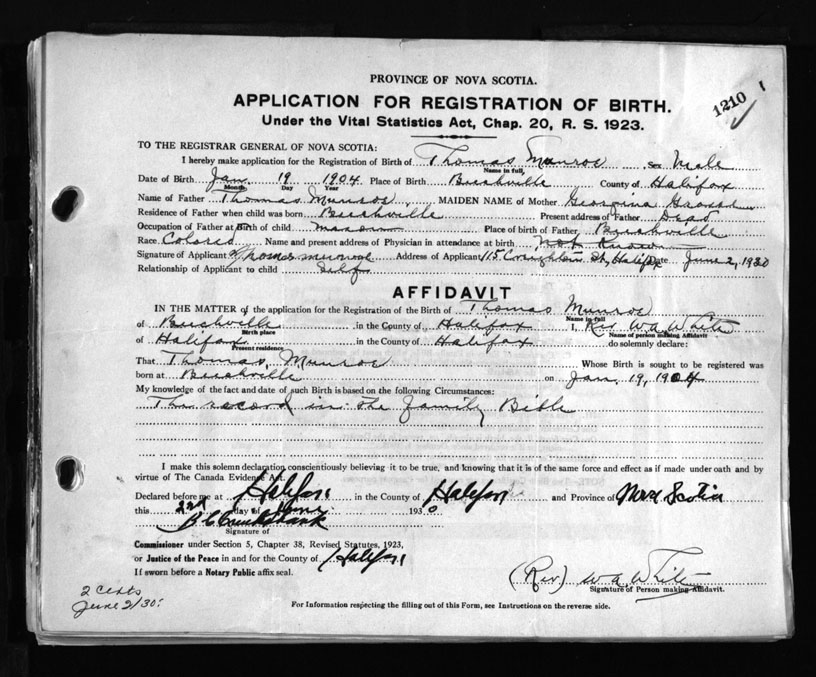 PROVINCE OF NOVA SCOTIA.
1210
APPLICATION FOR REGISTRATION OF BIRTH.
Under the Vital Statistics Act, Chap. 20, R. S. 1923.
TO THE REGISTRAR GENERAL OF NOVA SCOTIA:
I hereby make application for the Registration of Birth of Thomas Munroe Sex Male
Name in full
Date of Birth Jan. 19 1904 Place of Birth Beechville County of Halifax
Month Day Year
Name of Father Thomas Munroe MAIDEN NAME of Mother Georgina
Residence of Father when child was born Beechville Present address of Father Dead
Occupation of Father at Birth of child mason Place of birth of Father Beechville
Race Colored Name and present address of Physician in attendance at birth Not Known
Signature of Applicant Thomas Munroe Address of Applicant 115 Creighton St, Halifax Date June 2, 1930
Relationship of Applicant to child self
AFFIDAVIT
IN THE MATTER of the application for the Registration of the Birth of Thomas Munroe
Name in full
of Beechville in the County of Halifax I, Rev W A White
Birth place Name of person making Affidavit
of Halifax in the County of Halifax do solemnly declare:
Present residence
That Thomas Munroe Whose Birth is sought to be registered was
born at Beechville on Jan, 19, 1904
My knowledge of the fact and date of such Birth is based on the following Circumstances:
The record in the family Bible
I make this solemn declaration conscientiously believing it to be true, and knowing that is of the same force and effect as if made under oath and by
virtue of The Canada Evidence Act.
Declared before me at Halifax in the County of Halifax and Province of Nova Scotia
this 2nd day of June 1930
Signature of
Commissioner under Section 5, Chapter 38, Revised Statutes, 1923,
or Justice of the Peace in and for the County of Halifax
If sworn before a Notary Public affix seal.
(Rev) W A White
Signature of Person making Affidavit.
2 Certs
June 2/30.
For Information respecting the filling out of this Form, see Instructions on the reverse side.